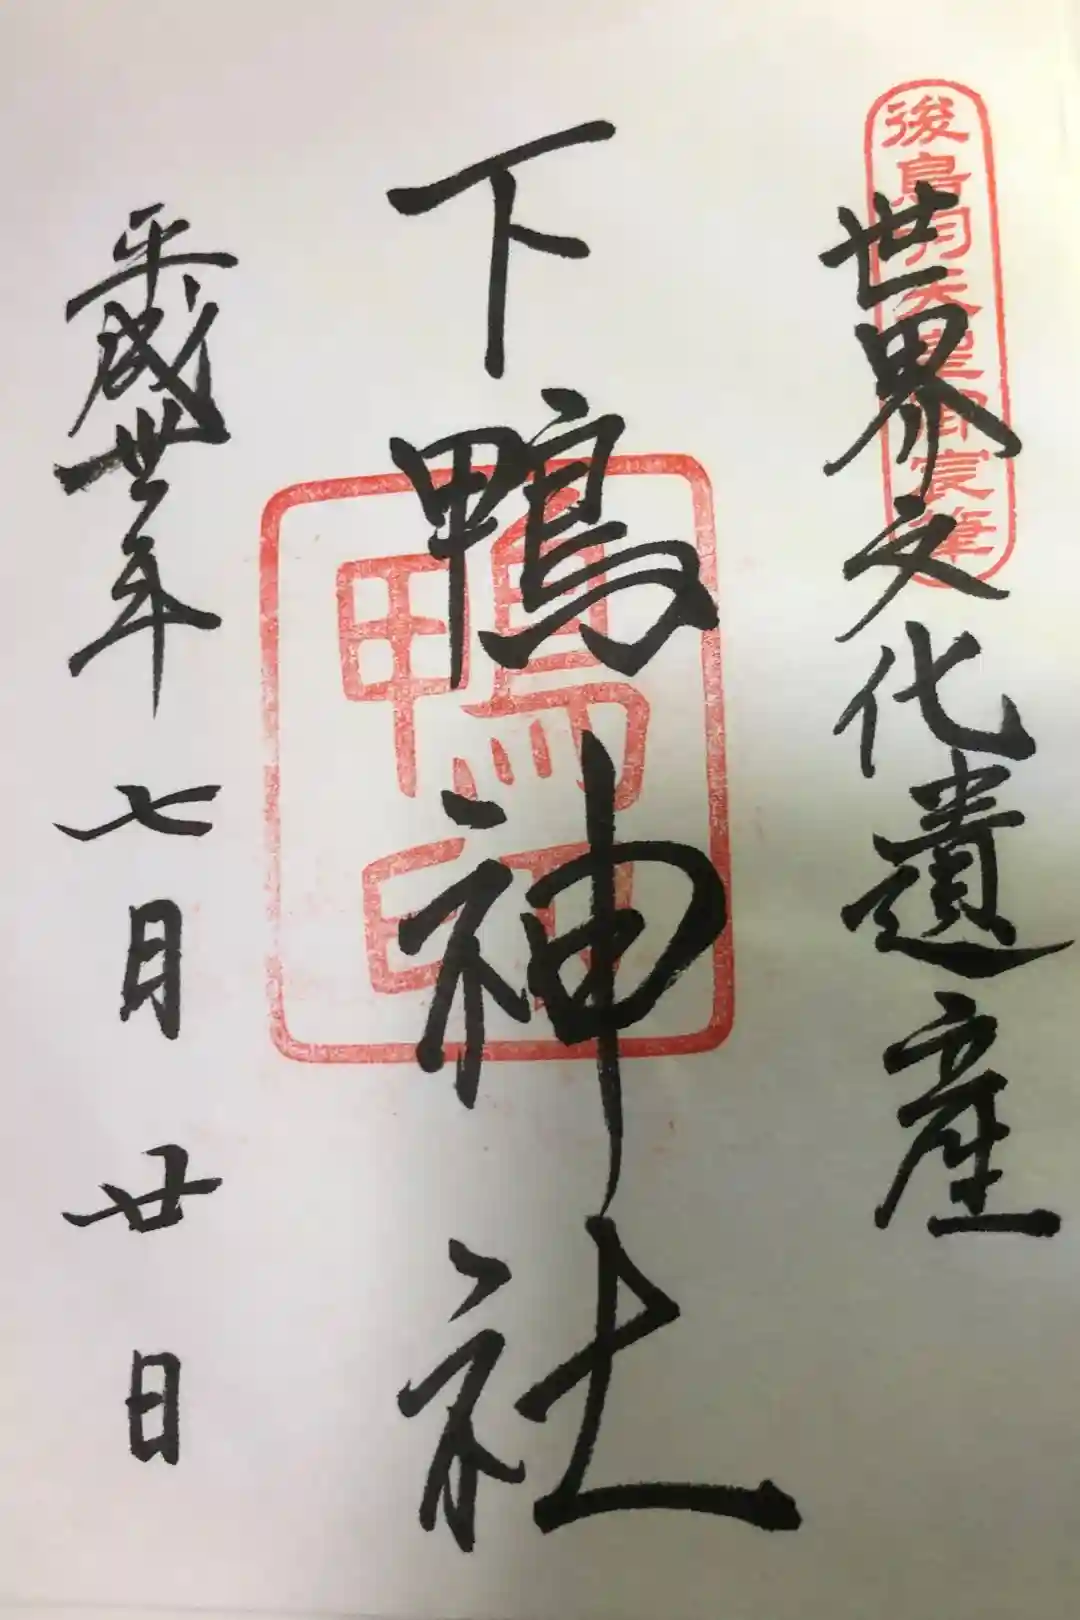 後鳥羽天皇御宸筆
世界文化遺産
下鴨神社
鴨印
平成卅年七月廿日